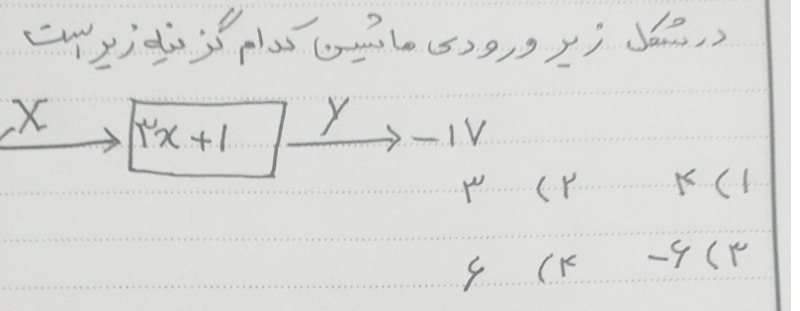 در شکل زیر ورودی ماشین کدام گزینه زیر است
X ۳x+1 y -۱۷
۱) ۴ ۲) ۳
۳) -۶ ۴) ۶